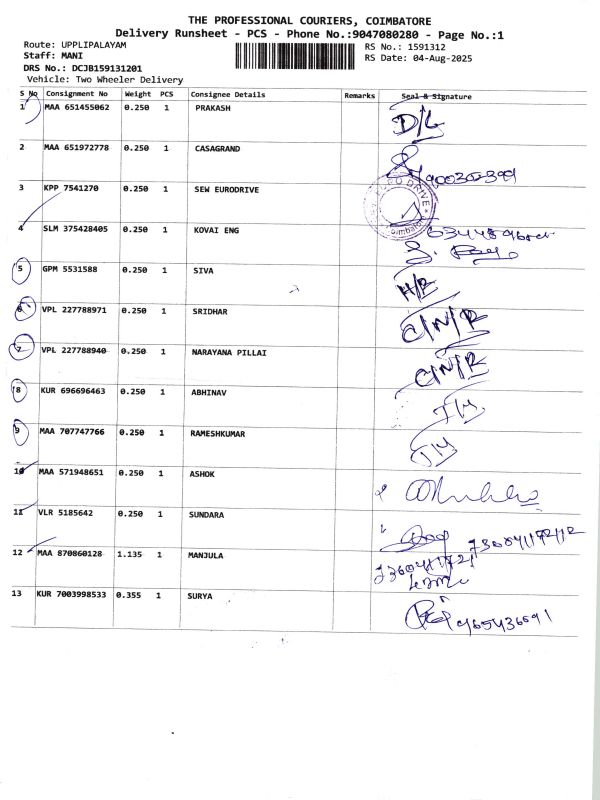 THE PROFESSIONAL COURIERS, COIMBATORE
Delivery Runsheet - PCS - Phone No.:9047080280 - Page No.:1
Route: UPPLIPALAYAM RS No.: 1591312
Staff: MANI RS Date: 04-Aug-2025
DRS No.: DCJB159131201
Vehicle: Two Wheeler Delivery
S No Consignment No Weight PCS Consignee Details Remarks Seal & Signature
1 MAA 651455062 0.250 1 PRAKASH D/L
2 MAA 651972778 0.250 1 CASAGRAND
3 KPP 7541270 0.250 1 SEW EURODRIVE
4 SLM 375428405 0.250 1 KOVAI ENG
5 GPM 5531588 0.250 1 SIVA H/R
6 VPL 227788971 0.250 1 SRIDHAR C/N/R
7 VPL 227788940 0.250 1 NARAYANA PILLAI C/N/R
8 KUR 696696463 0.250 1 ABHINAV
9 MAA 707747766 0.250 1 RAMESHKUMAR
10 MAA 571948651 0.250 1 ASHOK
11 VLR 5185642 0.250 1 SUNDARA
12 MAA 870860128 1.135 1 MANJULA
13 KUR 7003998533 0.355 1 SURYA